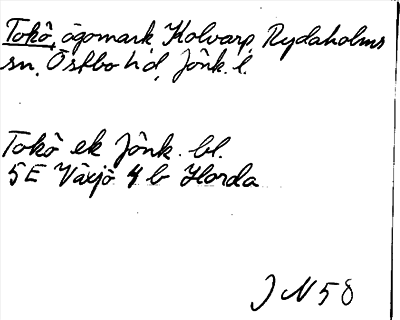 Tokö, ägomark Kolvarp, Rydaholms
sn, Östbo hd, Jönk. l.
Tokö ek Jönk. bl.
5E Växjö 4b Horda
J N 58